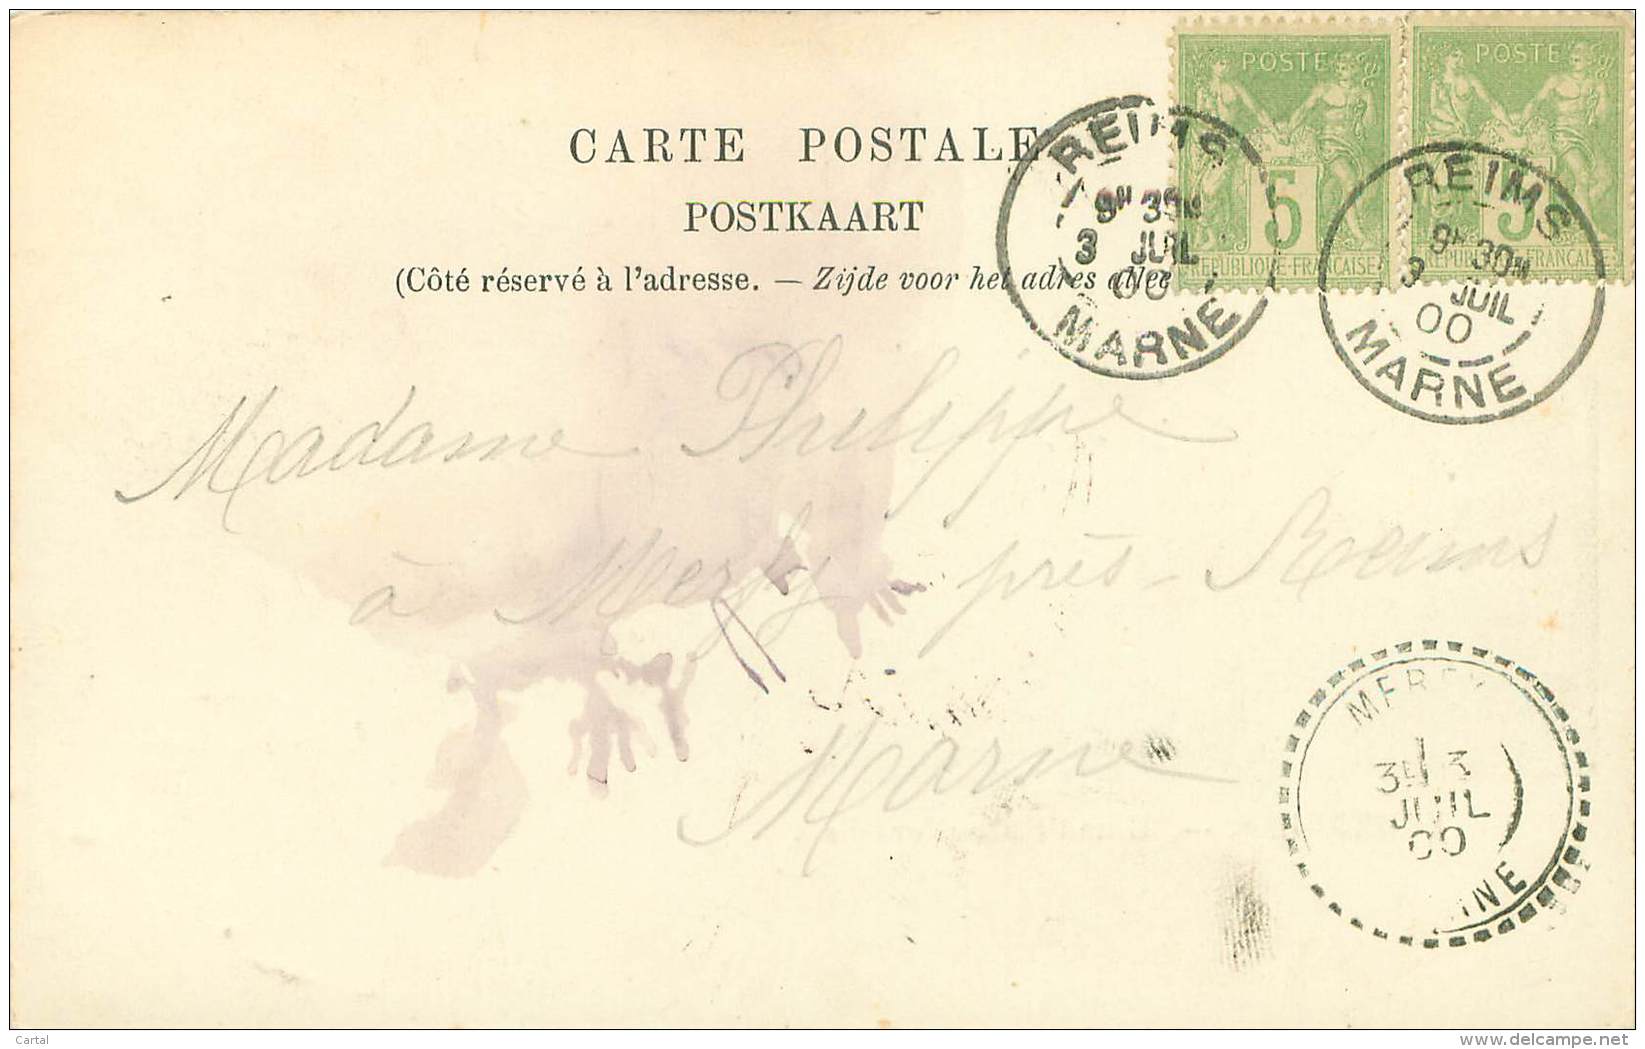 POSTE POSTE
CARTE POSTALE
REIMS
9H 30M
3 JUIL
00
MARNE
5
REPUBLIQUE FRANCAISE
REIMS
9H 30M
3 JUIL
00
MARNE
5
POSTKAART
(Côté réservé à l'adresse. — Zijde voor het adres allee
Madame Philippe
à Merfy près Reims
Marne
MERFY
3H 3
JUIL
00
MARNE
Cartal
www.delcampe.net